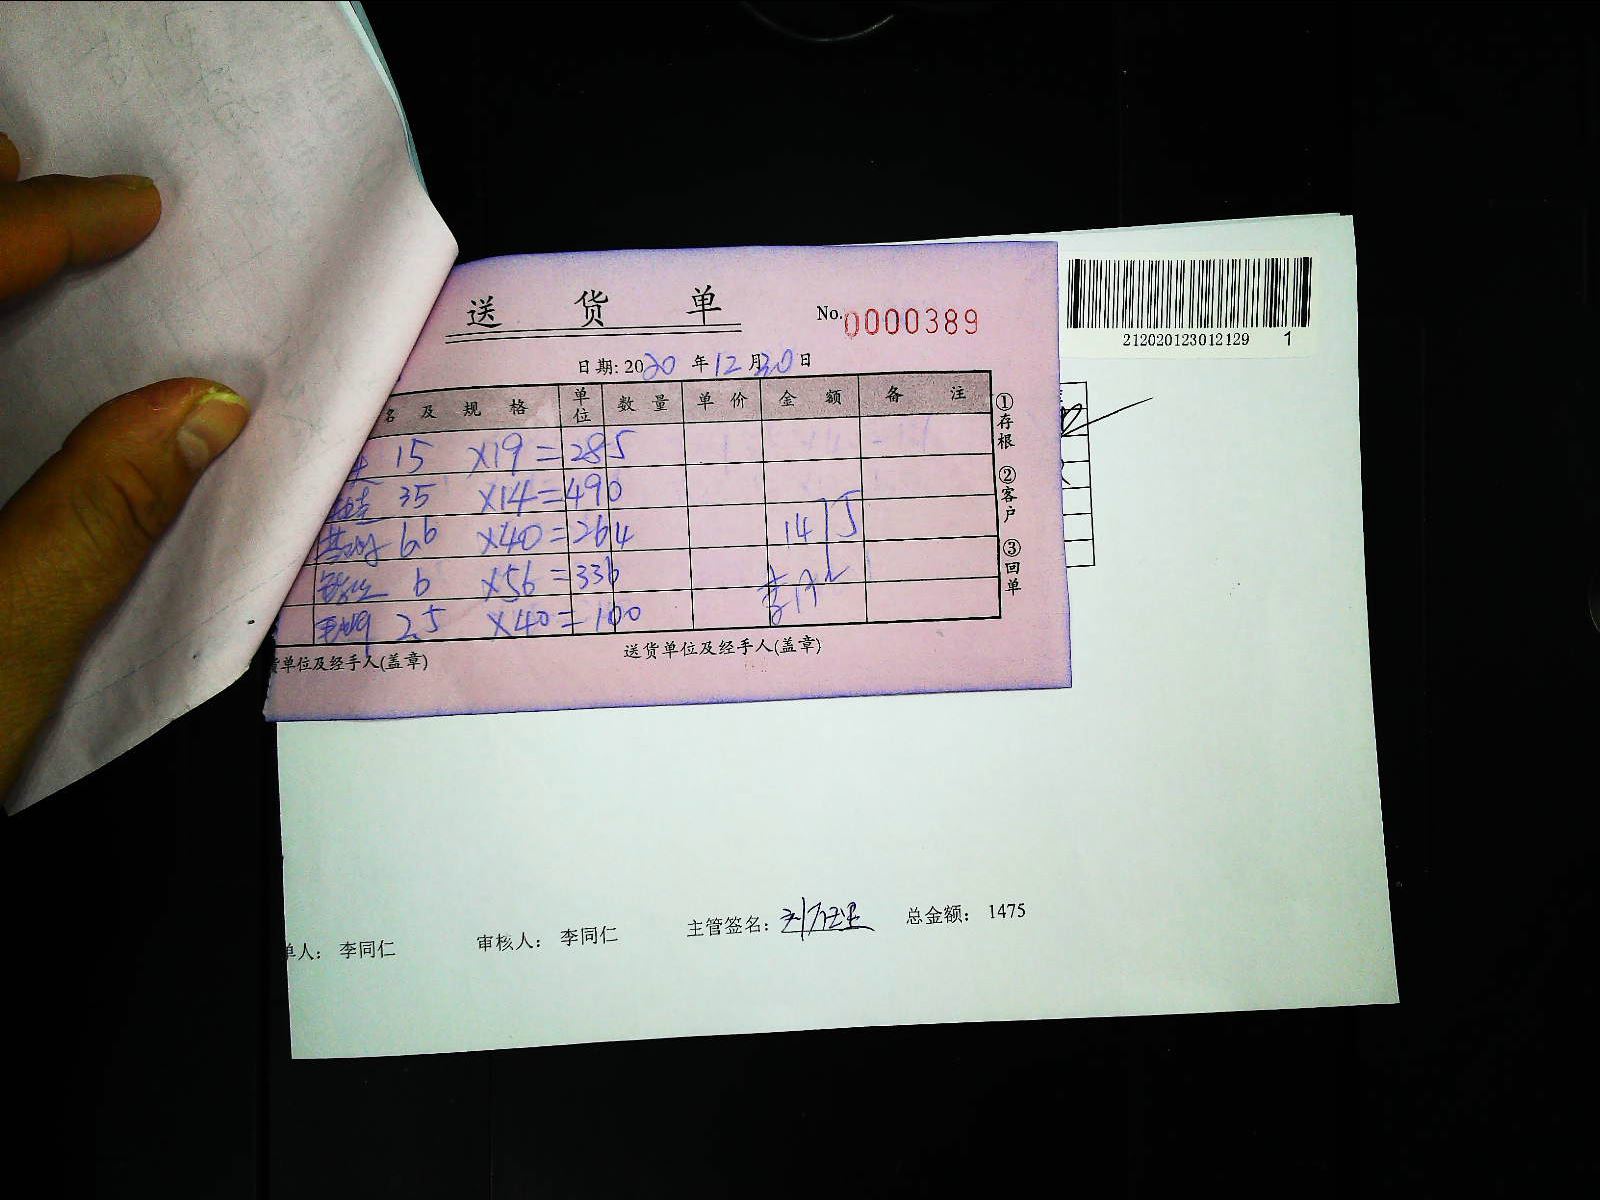 送 货 单
No. 0000389
212020123012129 1
日期: 2020 年 12 月 30 日
名 及 规 格 单位 数 量 单 价 金 额 备 注
15 ×19=285
35 ×14=490
6.6 ×40=264
6 ×56=336
2.5 ×40=100
1475
①存根 ②客户 ③回单
货单位及经手人(盖章) 送货单位及经手人(盖章)
单人: 李同仁 审核人: 李同仁 主管签名: 总金额: 1475